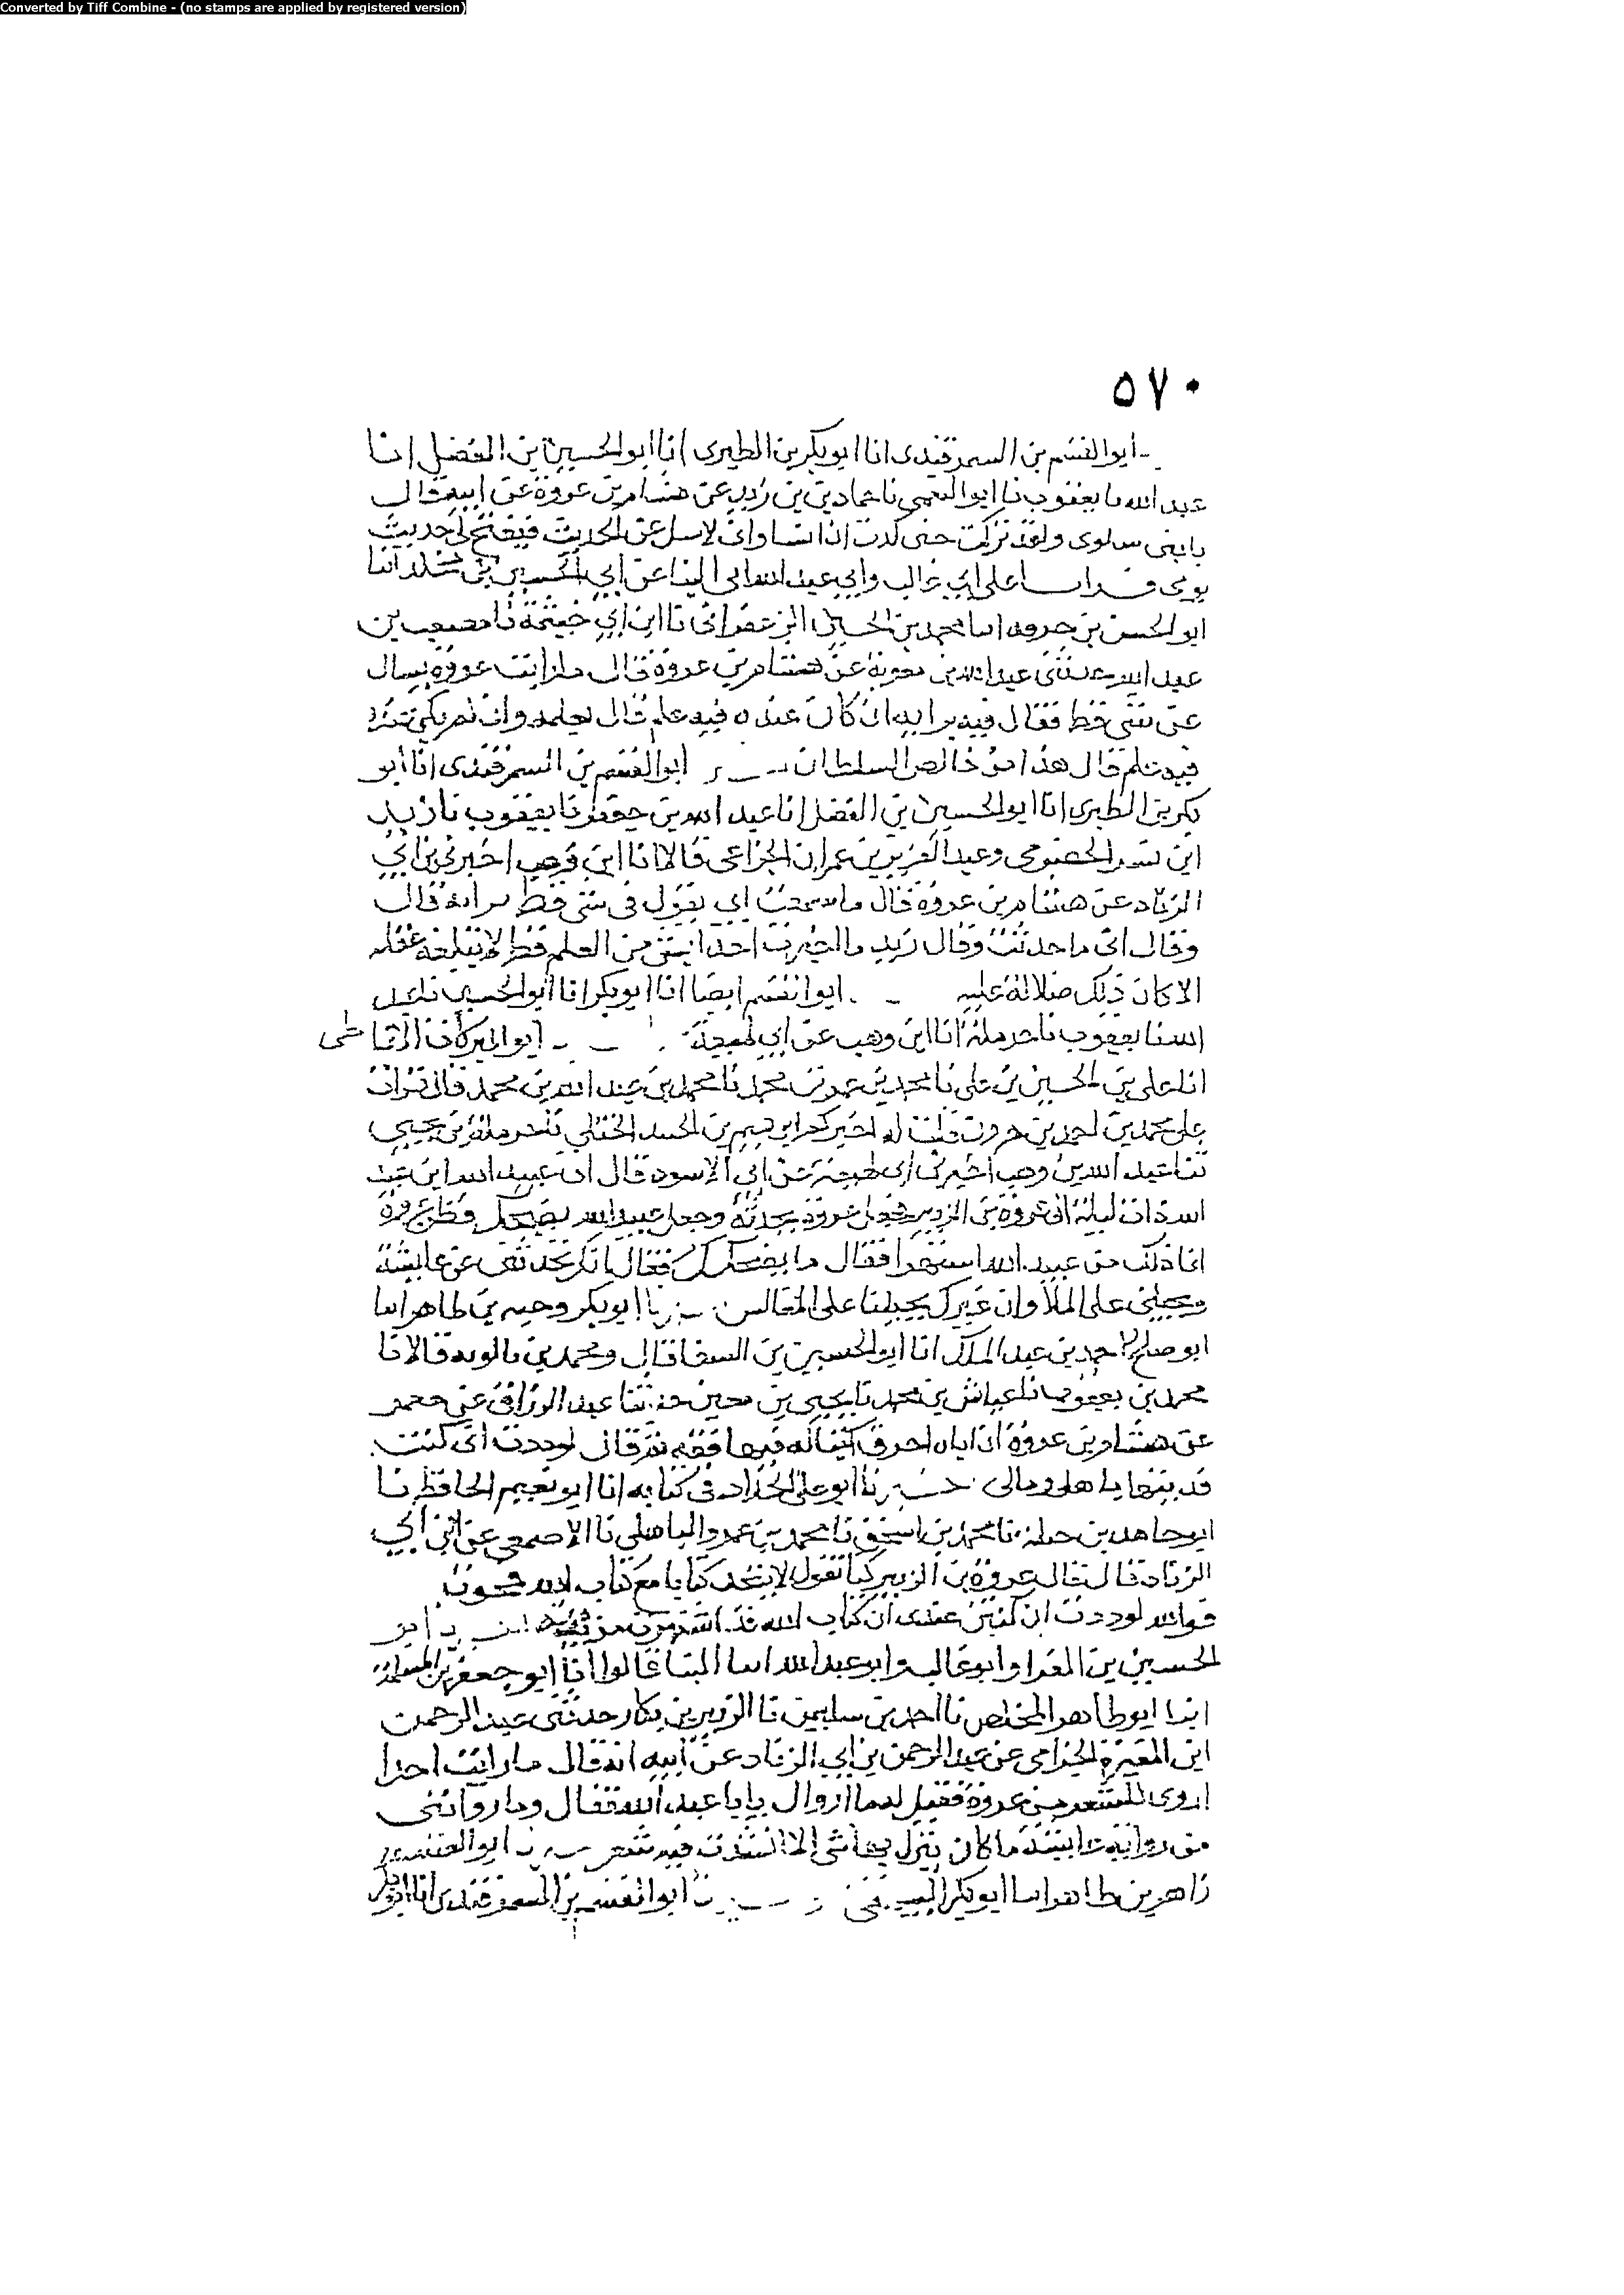 Converted by Tiff Combine - (no stamps are applied by registered version)
٥٧٠
ابو القسم بن السمرقندى انا ابو بكر بن الطبرى انا ابو الحسين بن الفضل انا
عبد الله نا يعقوب نا ابو النعمى نا حماد بن زيد عن هشام بن عروة عن ابيه قال
يا بنى سلونى ولقد تركت حتى كدت ان انسا وانى لاسل عن الحديث فيفتح لى حديث
يومى على ابى غالب وابى عبد الله ابى البنا عن ابى الحسين بن مخلد انا
ابو الحسن بن خزفه انا محمد بن الحسين الزعفرانى نا ابن ابى خيثمة نا مصعب بن
عبد الله حدثنى عبد الله بن معوية عن هشام بن عروة قال ما رايت عروة يسال
عن شى قط فقال فيه برايه ان كان عنده فيه علم قال بعلمه وان لم يكن عنده
فيه علم قال هذا من خالص السلطان ابو القسم بن السمرقندى انا ابو
بكر بن الطبرى انا ابو الحسين بن الفضل انا عبد الله بن جعفر نا يعقوب نا زيد
ابن بشر الحضرمى وعبد العزيز بن عمران الخزاعى قالا انا ابن وهب اخبرنى بن ابى
الزناد عن هشام بن عروة قال ما سمعت ابى يقول فى شى قط برايه قال
وقال ابى ما حدثت وقال زيد ما اخبرت احدا بشى من العلم قط لا يبلغه عقله
الا كان ذلك ضلالة عليه ابو القسم ايضا انا ابو بكر انا ابو الحسين نا عبد
الله نا يعقوب نا حرملة انا ابن وهب عن ابى لهيعة ابو البركات الانماطى
انا على بن الحسين بن على نا محمد بن عمر بن محمد نا محمد بن عبد الله بن محمد قال قرات
على محمد بن احمد بن هرون قلت له اخبركم ابراهيم بن الجنيد الختلى نا حرملة بن يحيى
ثنا عبد الله بن وهب اخبرنى ابن لهيعة عن ابى الاسود قال ان عبيد الله ابن عبد
الله ذات ليلة اتى عروة بن الزبير فجعل عروة يحدثه وجعل عبيد الله يضحك فظن عروة
انما ذلك من عبيد الله استهزا فقال ما يضحكك فقال انك تحدثنى عن عايشة
وتحيلنى على الملا وان غيرك يحيلنا على المفاليس ابو بكر وجيه بن طاهر انا
ابو صالح احمد بن عبد الملك انا ابو الحسين بن السقا قال ومحمد بن بالويه قالا نا
محمد بن يعقوب نا عباس بن محمد نا يحيى بن معين حدثنا عبد الرزاق عن معمر
عن هشام بن عروة ان اباه احرق كتبا له فيها فقه ثم قال لوددت انى كنت
فديتها باهلى ومالى ابو على الحداد فى كتابه انا ابو نعيم الحافظ نا
ابو حامد بن جبلة نا محمد بن اسحق نا محمد بن عمرو الباهلى نا الاصمعى عن ابن ابى
الزناد قال قال عروة بن الزبير كنا نقول لا يتخذ كتابا مع كتاب الله فمحوت
فوالله لوددت ان كتبى عندى ان كتاب الله قد استمرت مريرته ابو
الحسين بن الفرا وابو غالب وابو عبد الله ابنا البنا قالوا انا ابو جعفر بن المسلمة
انا ابو طاهر المخلص نا احمد بن سليمن نا الزبير بن بكار حدثنى عبد الرحمن
ابن المغيرة الحزامى عن عبد الرحمن بن ابى الزناد عن ابيه انه قال ما رايت احدا
اروى للشعر من عروة فقيل له ما ارواك يا ابا عبد الله فقال وما روايتى
من رواية عايشة ما كان ينزل بها شى الا انشدت فيه شعر ابو القسم
زاهر بن طاهر انا ابو بكر البيهقى ابو القسم بن السمرقندى انا ابو بكر